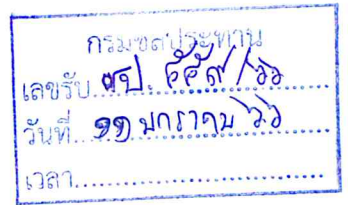 กรมชลประทาน
เลขรับ
วันที่ ๑๑ มกราคม ๖๖
เวลา